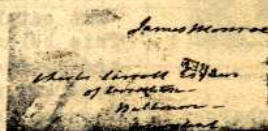 James Monroe
Charles Carroll
of Carrollton
Baltimore